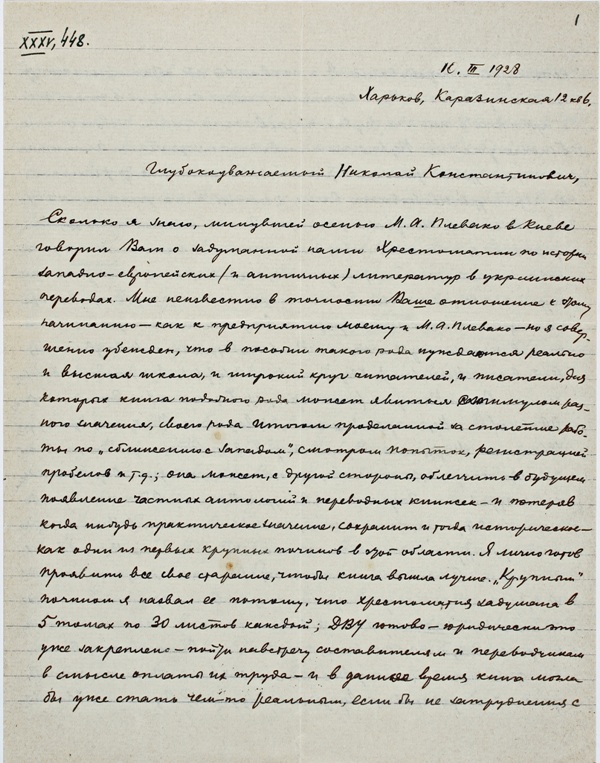 1
XXXV, 448.
1(. III 1928
Харьков, Каразинская 12 кв 6.
Глубокоуважаемый Николай Константинович,
Сколько я знаю, минувшей осенью М. А. Плевако в Киеве
говорил Вам о задуманной нами Хрестоматии по истории
западно-европейских (и античных) литератур в украинских
переводах. Мне неизвестно в точности Ваше отношение к этому
начинанию – как к предприятию моему и М.А. Плевако – но я совер-
шенно убежден, что в пособии такого рода нуждается реально
и высшая школа, и широкий круг читателей, и писатели, для
которых книга подобного рода может явиться стимулом раз-
ного значения, своего рода итогом проделанной за столетие рабо-
ты по „сближению с западом“, смотром попыток, регистрацией
пробелов и т.д.; она может, с другой стороны, облегчить в будущем
появление частных антологий и переводных книжек – и потеряв
когда нибудь практическое значение, сохранит и тогда историческое –
как один из первых крупных починов в этой области. Я лично готов
проявить все свое старание, чтобы книга вышла лучше. „Крупный“
почином я назвал ее потому, что хрестоматия задумана в
5 томах по 30 листов каждый; ДВУ готово – юридически это
уже закреплено – пойти навстречу составителям и переводчикам
в смысле оплаты их труда – и в данное время книга могла
бы уже стать чем-то реальным, если бы не затруднения с